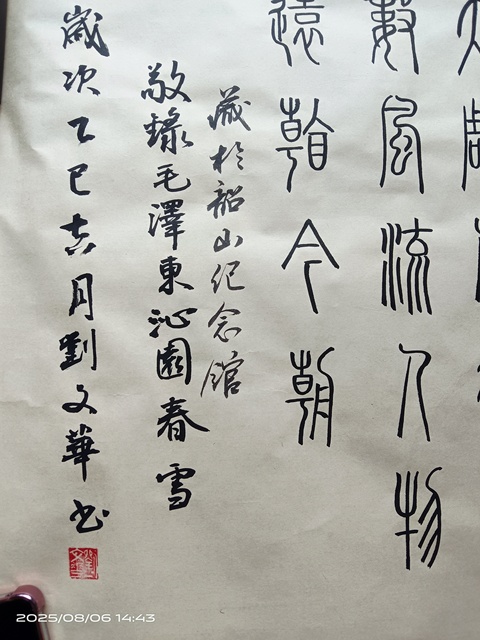 數風流人物
還看今朝
藏於韶山纪念館
敬錄毛澤東沁園春雪
歲次乙巳吉月劉文華书
2025/08/06 14:43